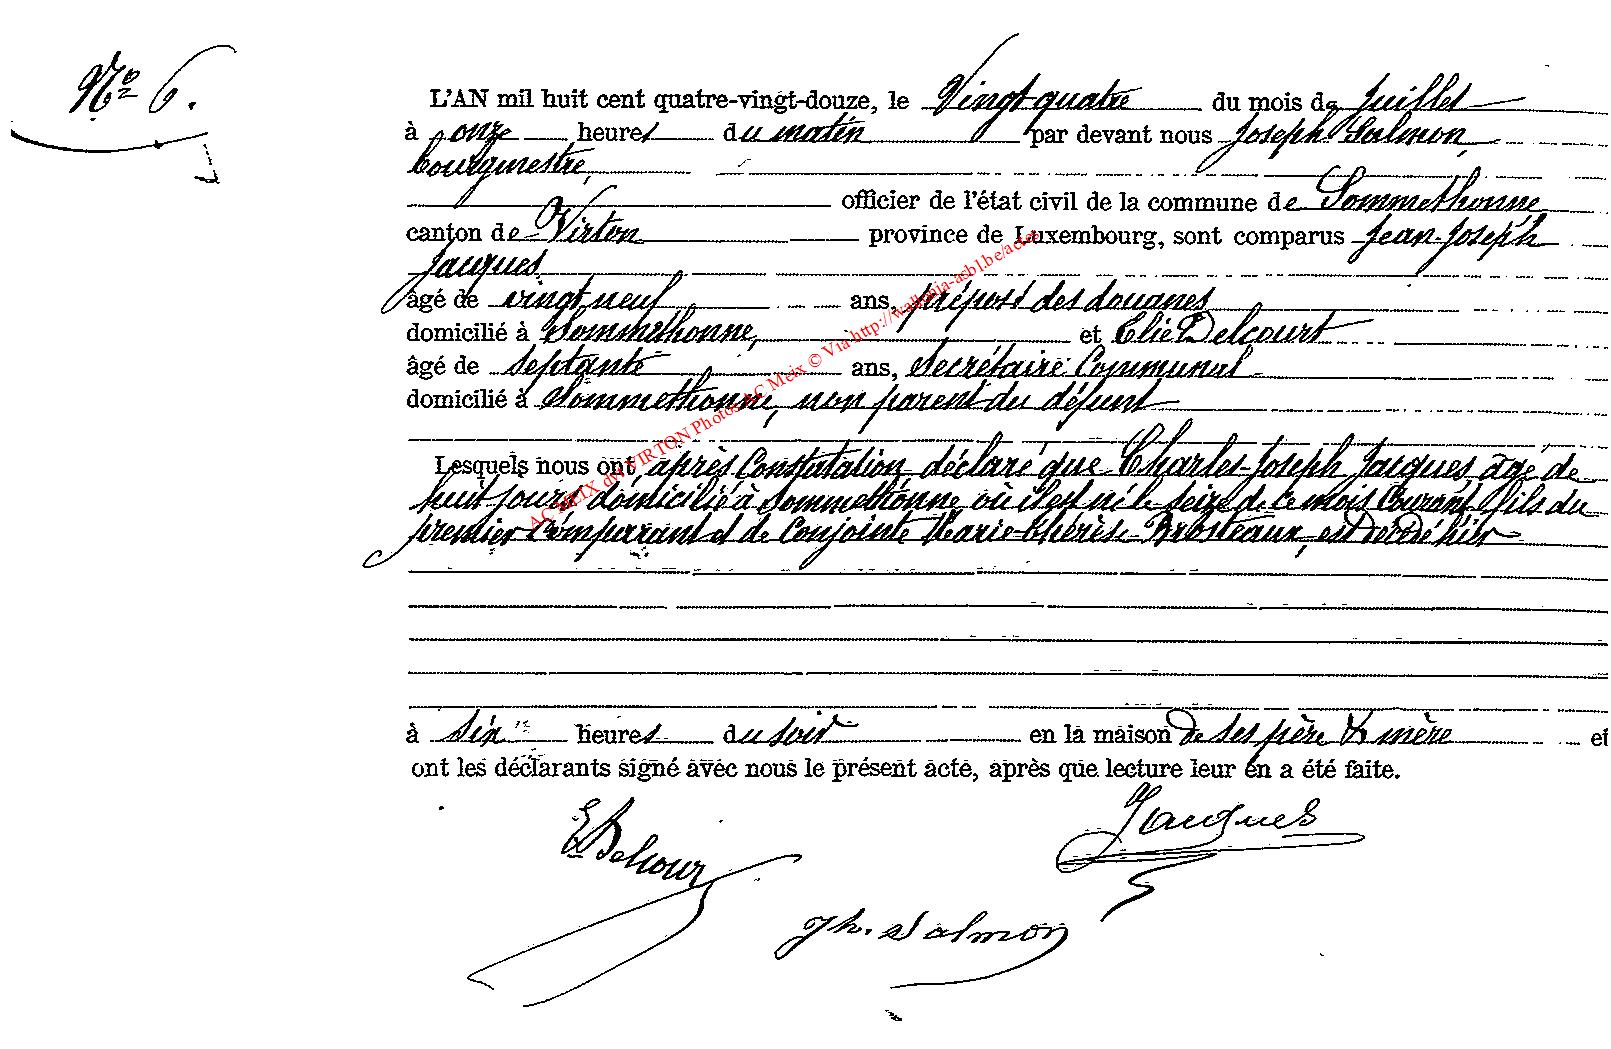 Nº 6.
L'AN mil huit cent quatre-vingt-douze, le Vingt-quatre du mois de Juillet
à onze heures du matin par devant nous Joseph Salmon,
bourgmestre,
officier de l'état civil de la commune de Sommethonne
canton de Virton province de Luxembourg, sont comparus Jean-Joseph
Jacques
âgé de vingt neuf ans, préposé des douanes
domicilié à Sommethonne, et Elie Delcourt
âgé de septante ans, Secrétaire Communal
domicilié à Sommethonne, non parent du défunt
Lesquels nous ont après Constatation, déclaré que Charles-Joseph Jacques, âgé de
huit jours, domicilié à Sommethonne, où il est né le seize de ce mois Courant, fils du
premier Comparant et de Conjointe Marie-Thérèse Brosteaux, est décédé hier
à six heures du soir en la maison de ses père & mère et
ont les déclarants signé avec nous le présent acte, après que lecture leur en a été faite.
Jacques
E Delcour
Jh. Salmon
AC MEIX dvt VIRTON Photos AC Meix © Via http://wallonia-asbl.be/actes